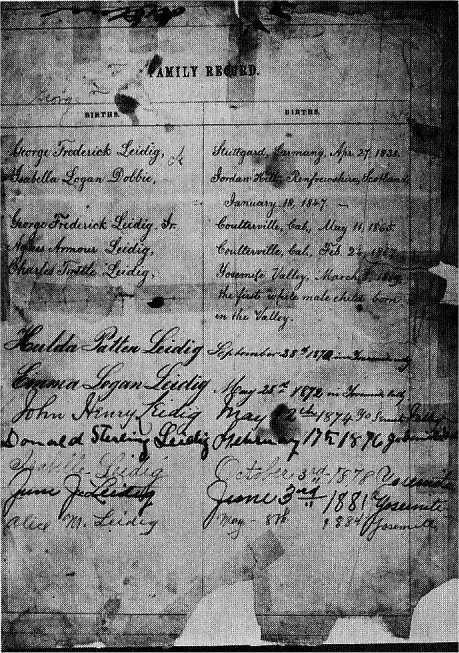 FAMILY RECORD.
George
BIRTHS. BIRTHS.
George Frederick Leidig, Stuttgard, Germany, Apr. 27, 1838.
Isabella Logan Dobbie, Jordan Hill, Renfrewshire, Scotland
January 18, 1847 —
George Frederick Leidig, Jr. Coulterville, Cal., May 11, 1865
Agnes Armour Leidig, Coulterville, Cal., Feb. 1867
Charles Tuttle Leidig, Yosemite Valley, March 8, 1869
the first white male child born
in the Valley.
Hulda Patten Leidig September 28th 1870 in Yosemite
Emma Logan Leidig May 28th 1872 in Yosemite
John Henry Leidig May 1874 Yo
Donald Sterling Leidig February 17th 1876 Yosemite
Isabella Leidig October 3rd 1878 Yosemite
June J. Leidig June 3rd 1881 Yosemite
Alice M. Leidig May - 8th 1884 Yosemite